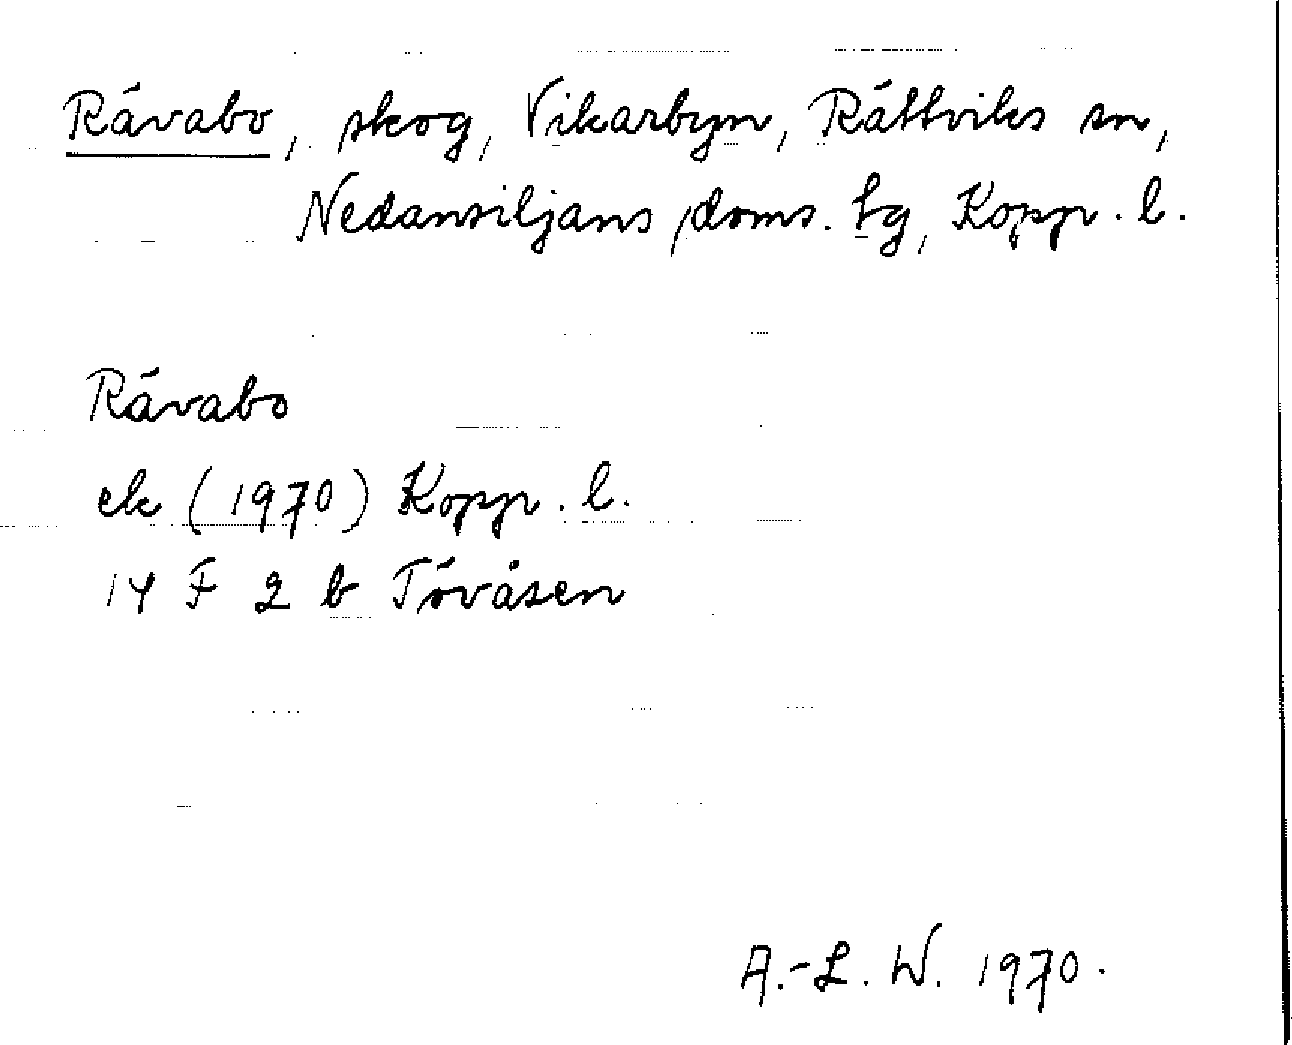 Rävabo, skog, Vikarbyn, Rättviks sn,
Nedansiljans doms. tg, Kopp. l.
Rävabo
ek (1970) Kopp. l.
14 F 2 b Tövåsen
A.-L. W. 1970.